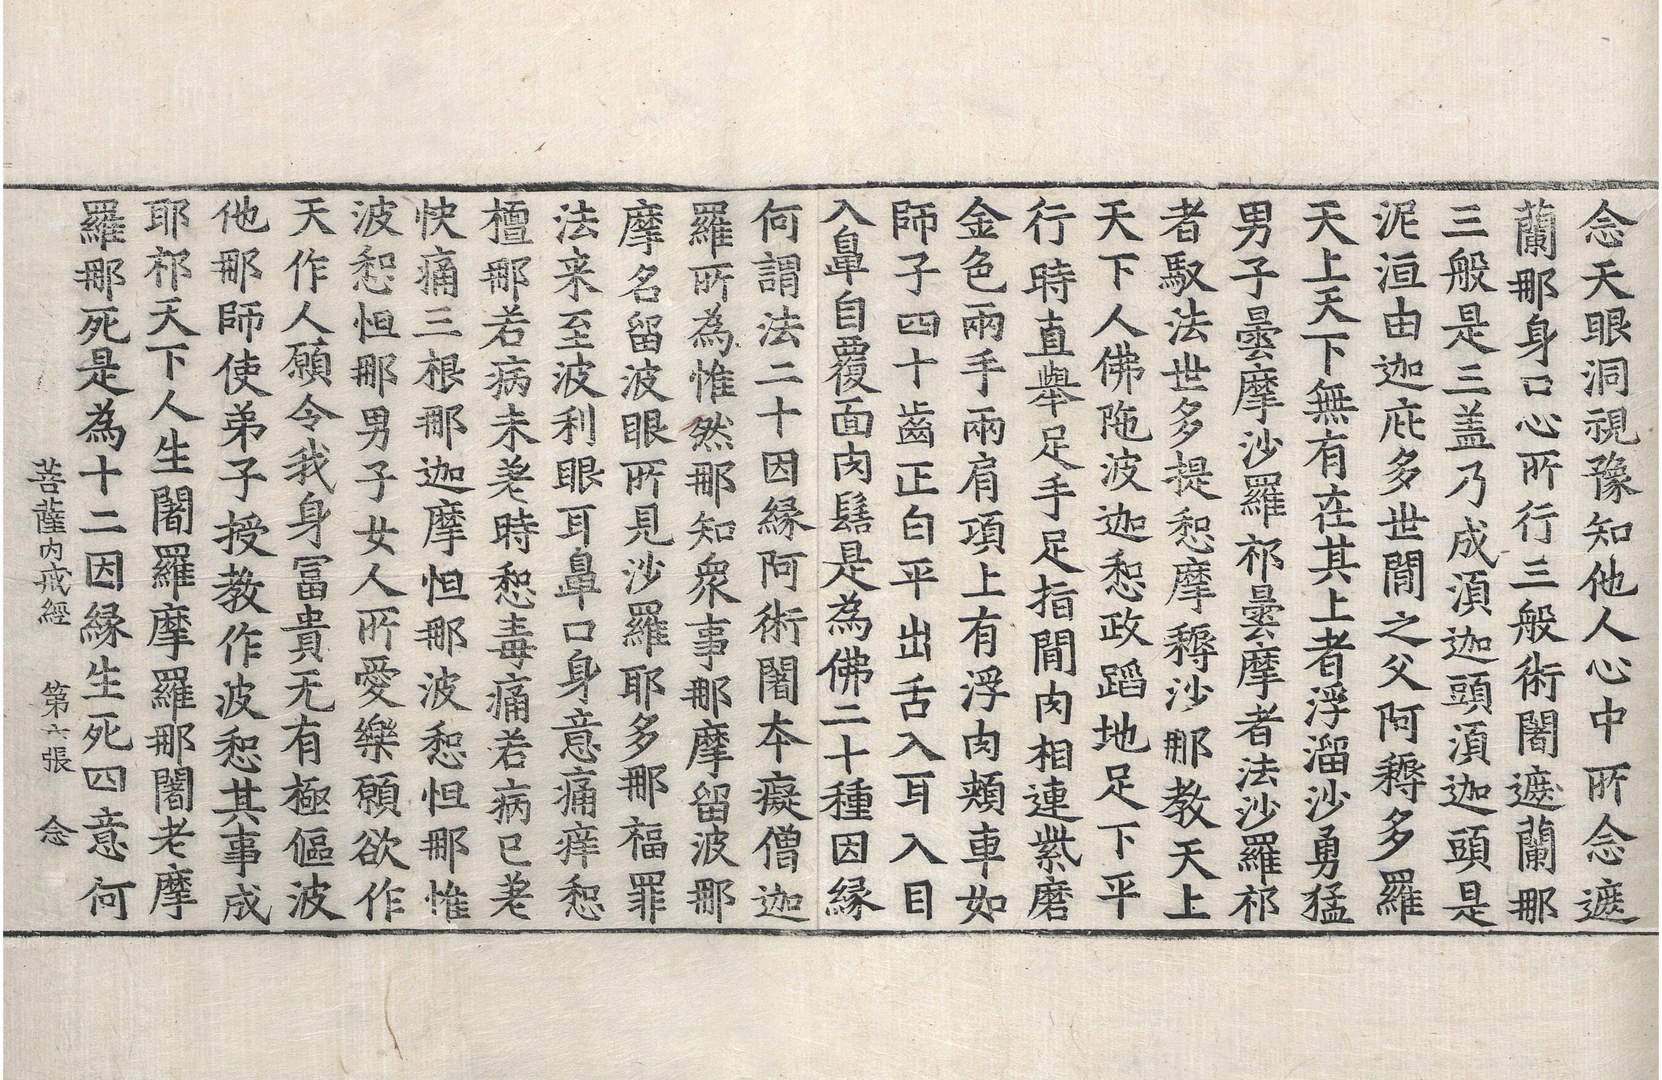 念天眼洞視豫知他人心中所念遮
蘭那身口心所行三般術闍遮蘭那
三般是三盖乃成湏迦頭湏迦頭是
泥洹由迦庇多世間之父阿耨多羅
天上天下無有在其上者浮溜沙勇猛
男子曇摩沙羅祁曇摩者法沙羅祁
者馭法世多提惒摩耨沙那教天上
天下人佛陁波迦惒政蹈地足下平
行時直舉足手足指間肉相連紫磨
金色兩手兩肩項上有浮肉頰車如
師子四十齒正白平出舌入耳入目
入鼻自覆面肉髻是為佛二十種因緣
何謂法二十因緣阿術闍本癡僧迦
羅所為惟然那知衆事那摩留波那
摩名留波眼所見沙羅耶多那福罪
法来至波利眼耳鼻口身意痛痒惒
檀那若病未差時惒毒痛若病已差
快痛三根那迦摩怛那波惒怛那惟
波惒怛那男子女人所愛樂願欲作
天作人願令我身冨貴无有極傴波
他那師使弟子授教作波惒其事成
耶祁天下人生闍羅摩羅那闍老摩
羅那死是為十二因緣生死四意何
菩薩内戒經 第六張 念